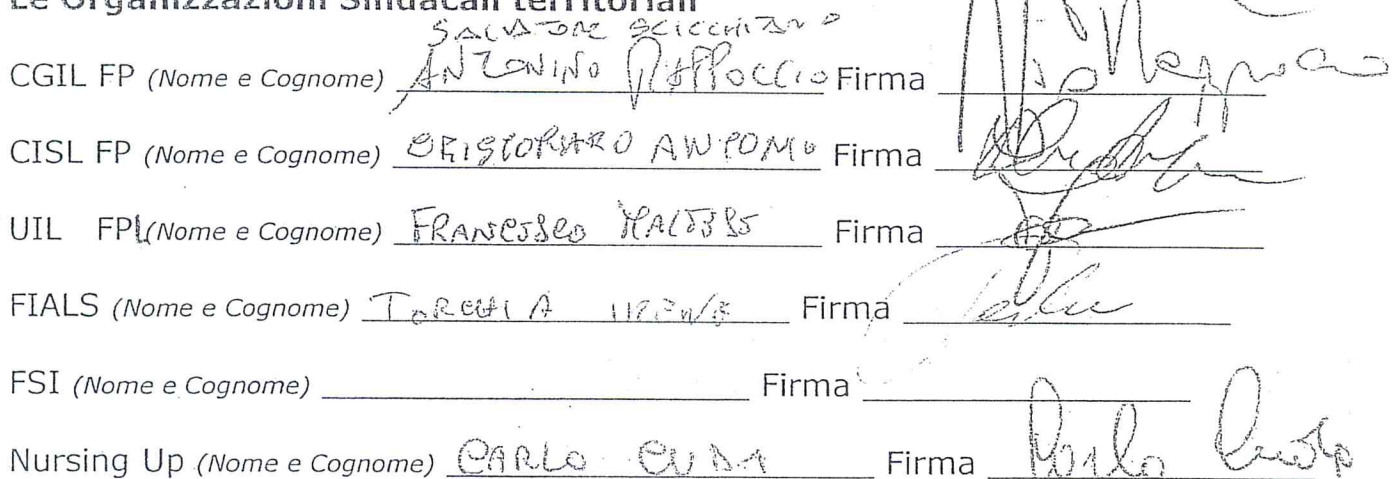 Le Organizzazioni Sindacali territoriali
SALVATORE SCICCHITANO
CGIL FP (Nome e Cognome) ANTONINO RAPPOCCIO Firma
CISL FP (Nome e Cognome) CRISTOFARO ANTONIO Firma
UIL FPL (Nome e Cognome) FRANCESCO MALTESE Firma
FIALS (Nome e Cognome) TORCHIA Firma
FSI (Nome e Cognome) Firma
Nursing Up (Nome e Cognome) CARLO CUDA Firma Carlo Cuda